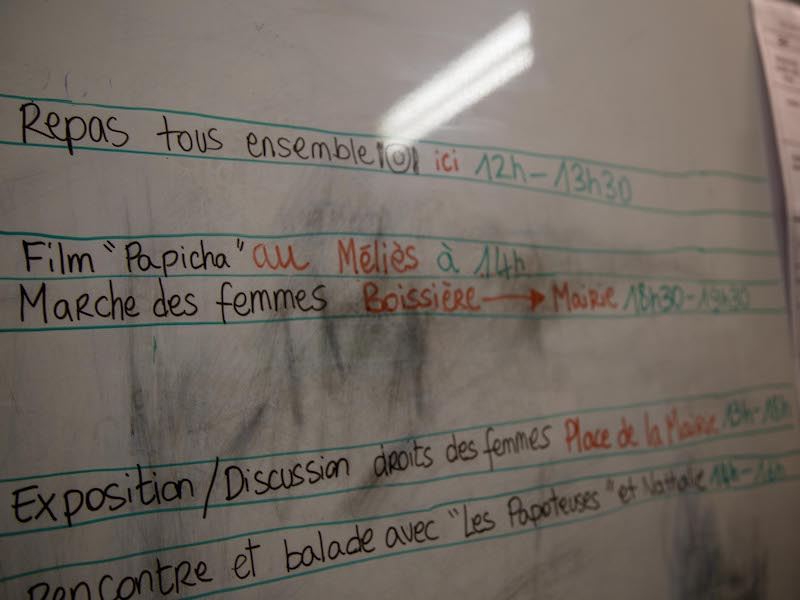 Repas tous ensemble ici 12h-13h30
Film "Papicha" au Méliès à 14h
Marche des femmes Boissière → Mairie 18h30-19h30
Exposition/Discussion droits des femmes Place de la Mairie 13h-18h
Rencontre et balade avec "Les Papoteuses" et Nathalie 14h-16h